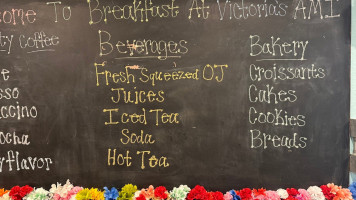 come To Breakfast At Victoria's AMI
ty coffee
e
sso
ccino
ocha
yflavor
Beverages
Fresh Squeezed OJ
Juices
Iced Tea
Soda
Hot Tea
Bakery
Croissants
Cakes
Cookies
Breads